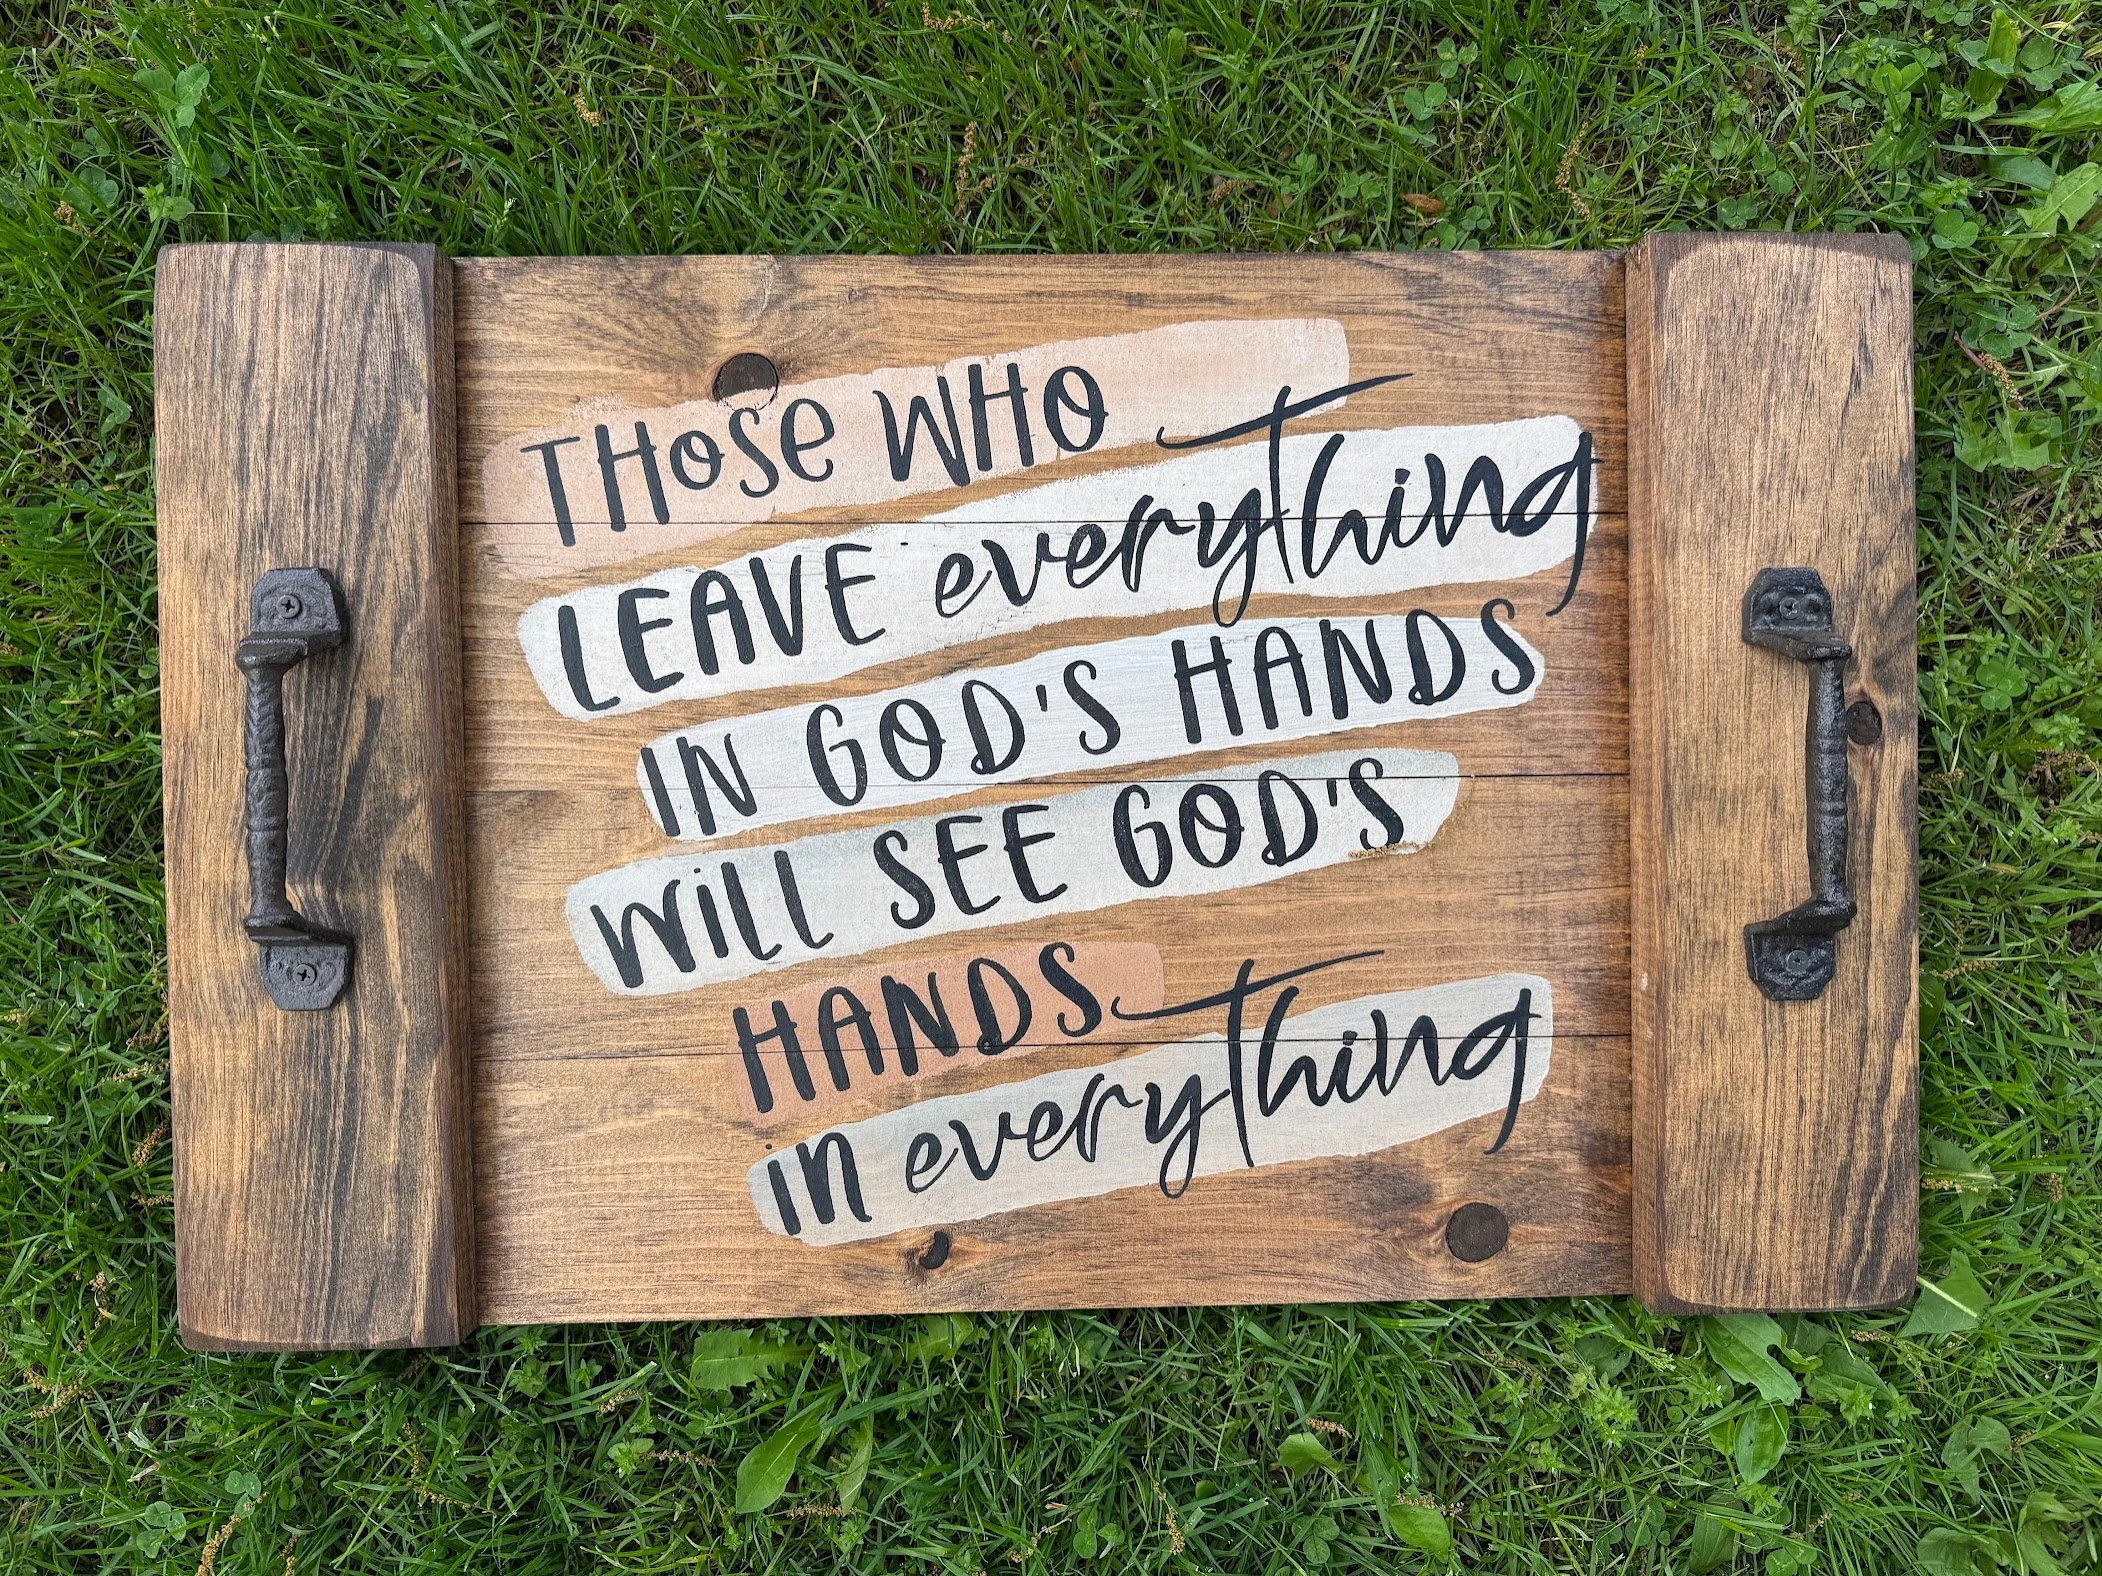 THOSE WHO
LEAVE everything
IN GOD'S HANDS
WiLL SEE GOD'S
HANDS
in everything